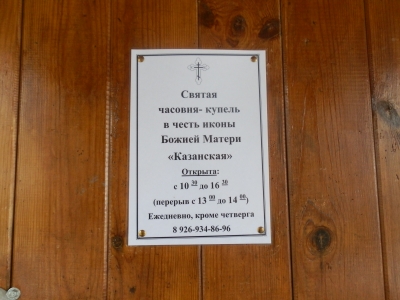 Святая
часовня- купель
в честь иконы
Божией Матери
«Казанская»
Открыта:
с 10 30 до 16 30
(перерыв с 13 00 до 14 00)
Ежедневно, кроме четверга
8 926-934-86-96